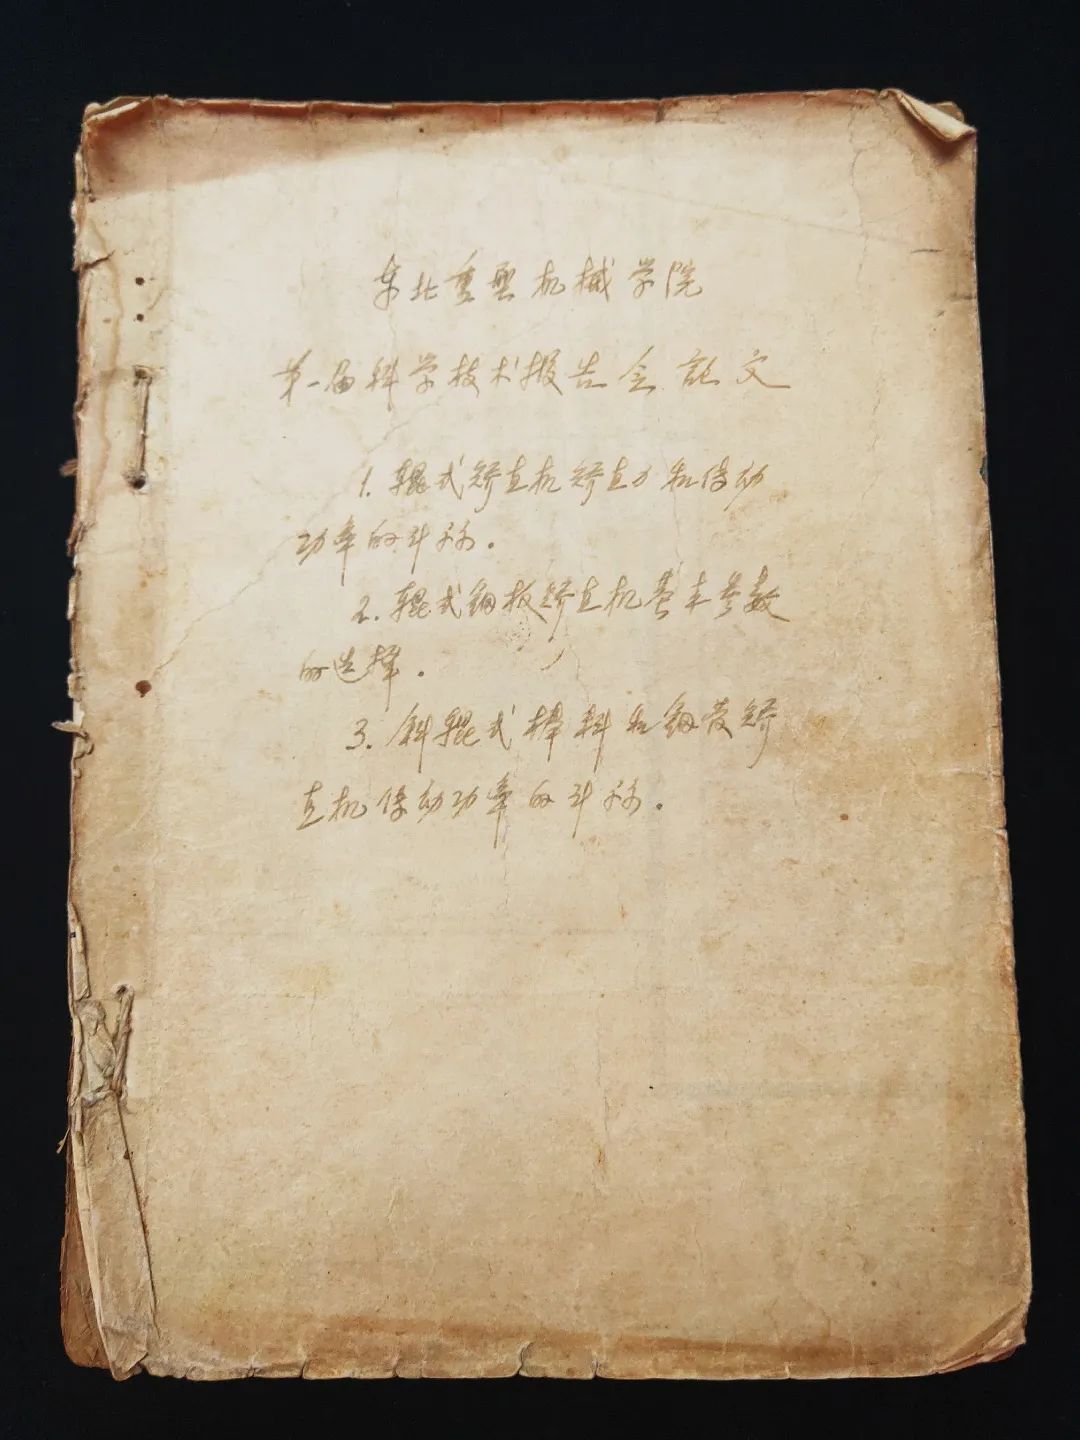 东北重型机械学院
第一届科学技术报告会论文
1. 辊式矫直机矫直力和传动
功率的计祘.
2. 辊式钢板矫直机基本参数
的选择.
3. 斜辊式棒料和钢管矫
直机传动功率的计祘.